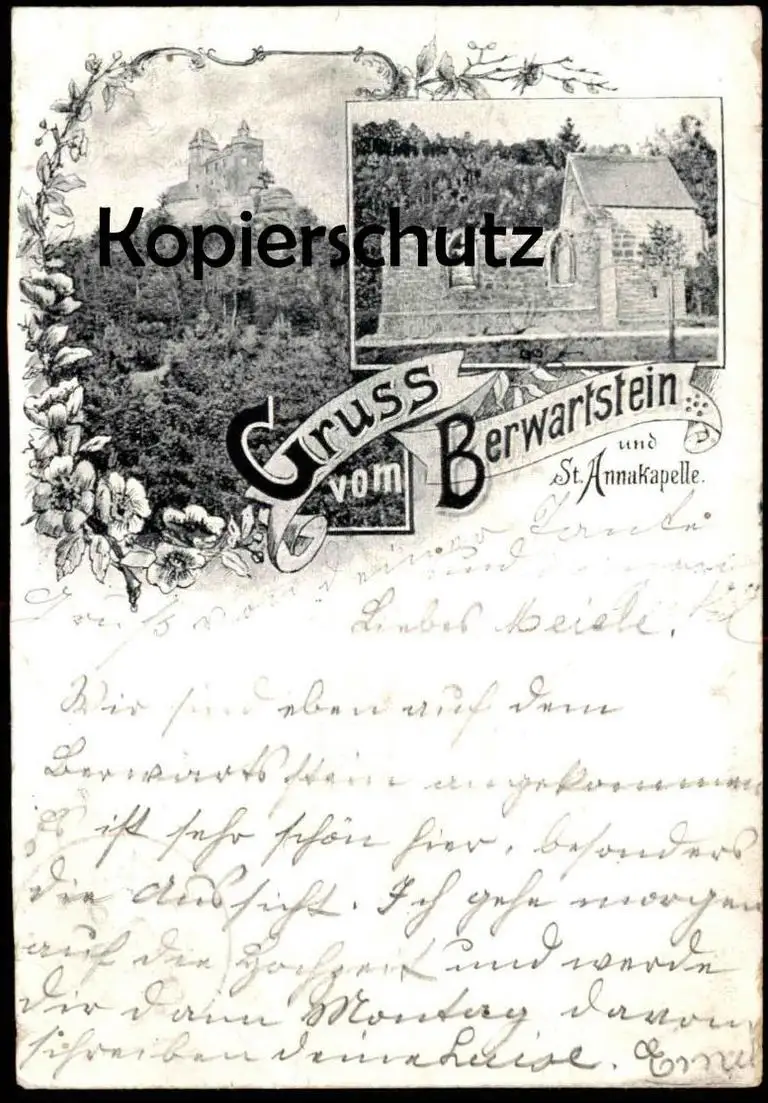 Kopierschutz
Gruss
vom Berwartstein
und
St. Annakapelle.
Gruß von deiner Tante
und
Liebes
Wir sind eben auf dem
Berwartsstein angekommen
Es ist sehr schön hier, besonders
die Aussicht. Ich gehe morgen
auf die Hochzeit und werde
Dir dann Montag davon
schreiben deine Luise.